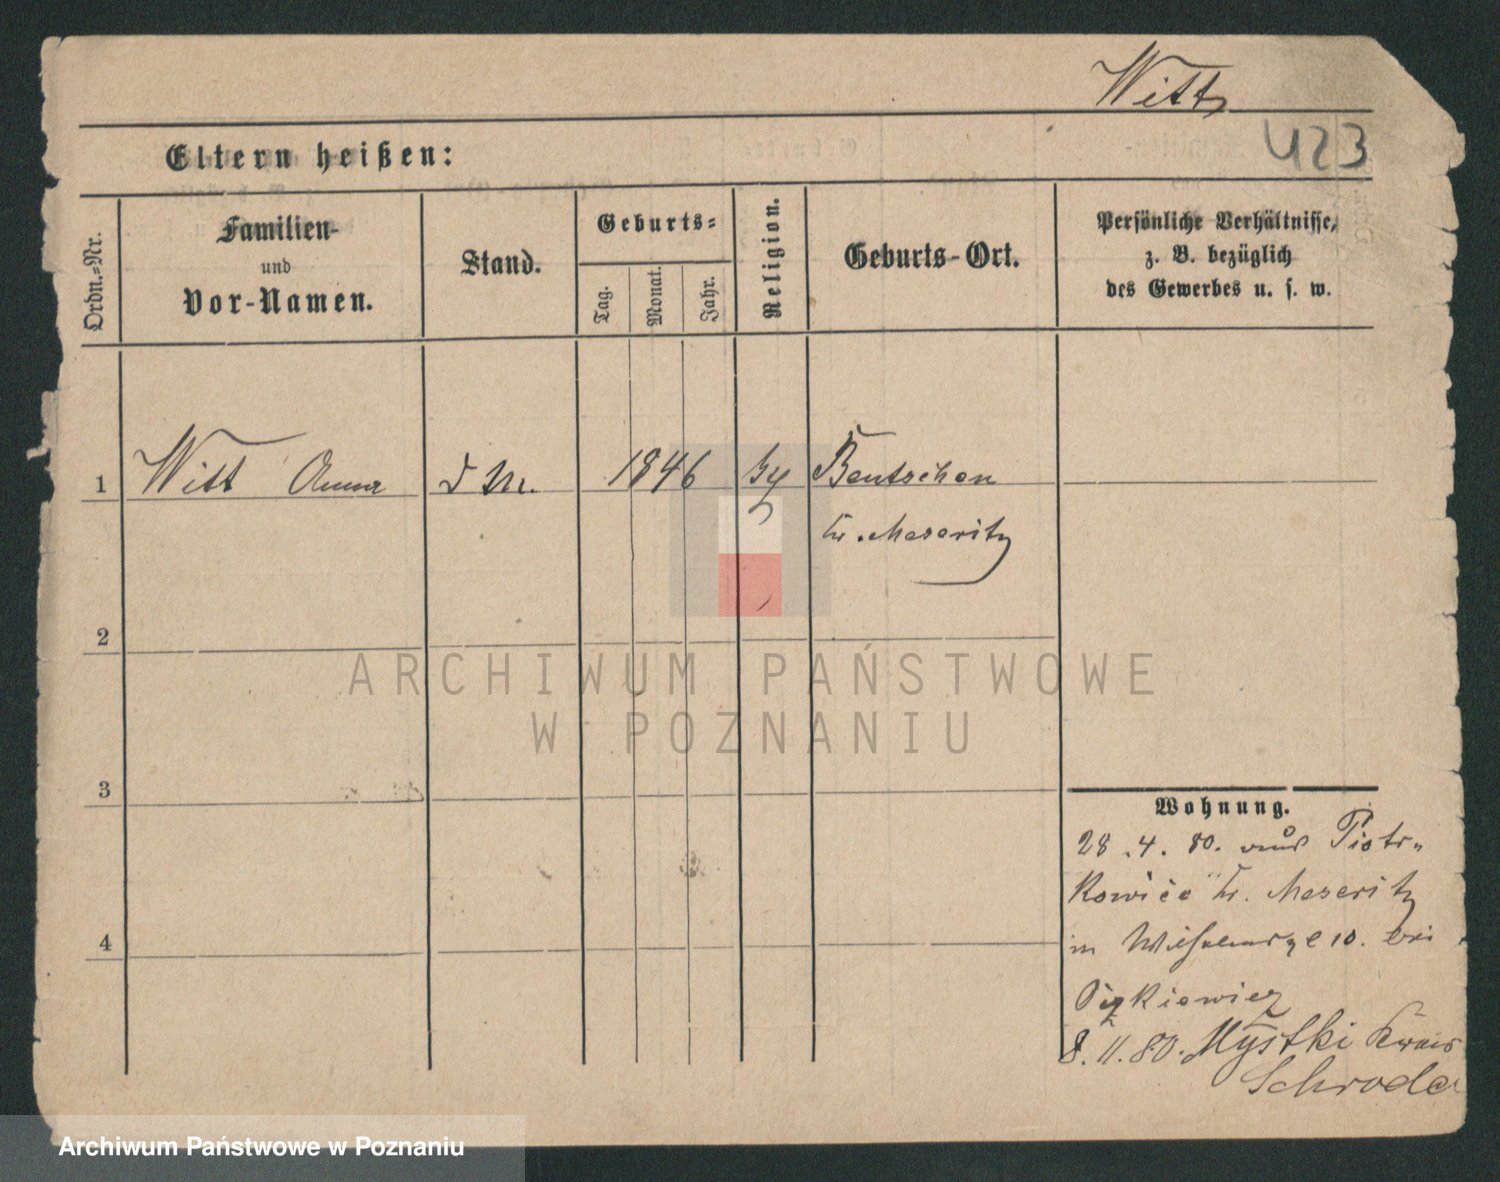 Witt
423
Eltern heißen:
Ordn.-Nr.
Familien-
und
Vor-Namen.
Stand.
Geburts-
Tag.
Monat.
Jahr.
Religion.
Geburts-Ort.
Persönliche Verhältnisse,
z. B. bezüglich
des Gewerbes u. s. w.
1 Witt Anna d M. 1846 Bentschen
Kr. Meseritz
2
3
4
Wohnung.
28.4.80. Piotr-
kowice Kr. Meseritz
in 10. bei
8.11.80. Mystki Kreis
Schroda
ARCHIWUM PAŃSTWOWE
W POZNANIU
Archiwum Państwowe w Poznaniu